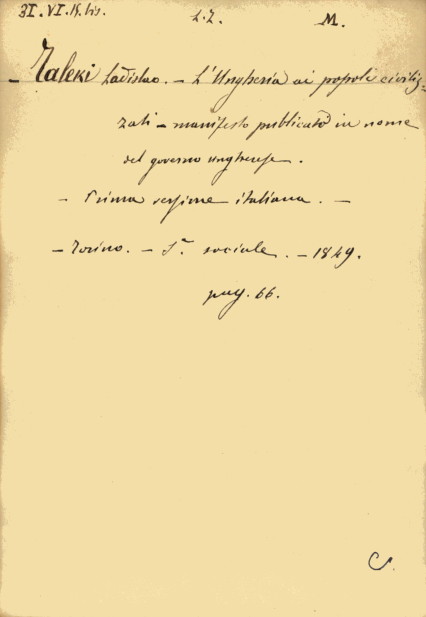 31. VI. K. bis. L. Z. M.
– Taleki Ladislao. – L'Ungheria ai popoli civiliz=
zati – manifesto publicato in nome
del governo ungherese.
– Prima versione italiana. –
– Torino. – Sª. sociale. – 1849.
pag. 66.
C.